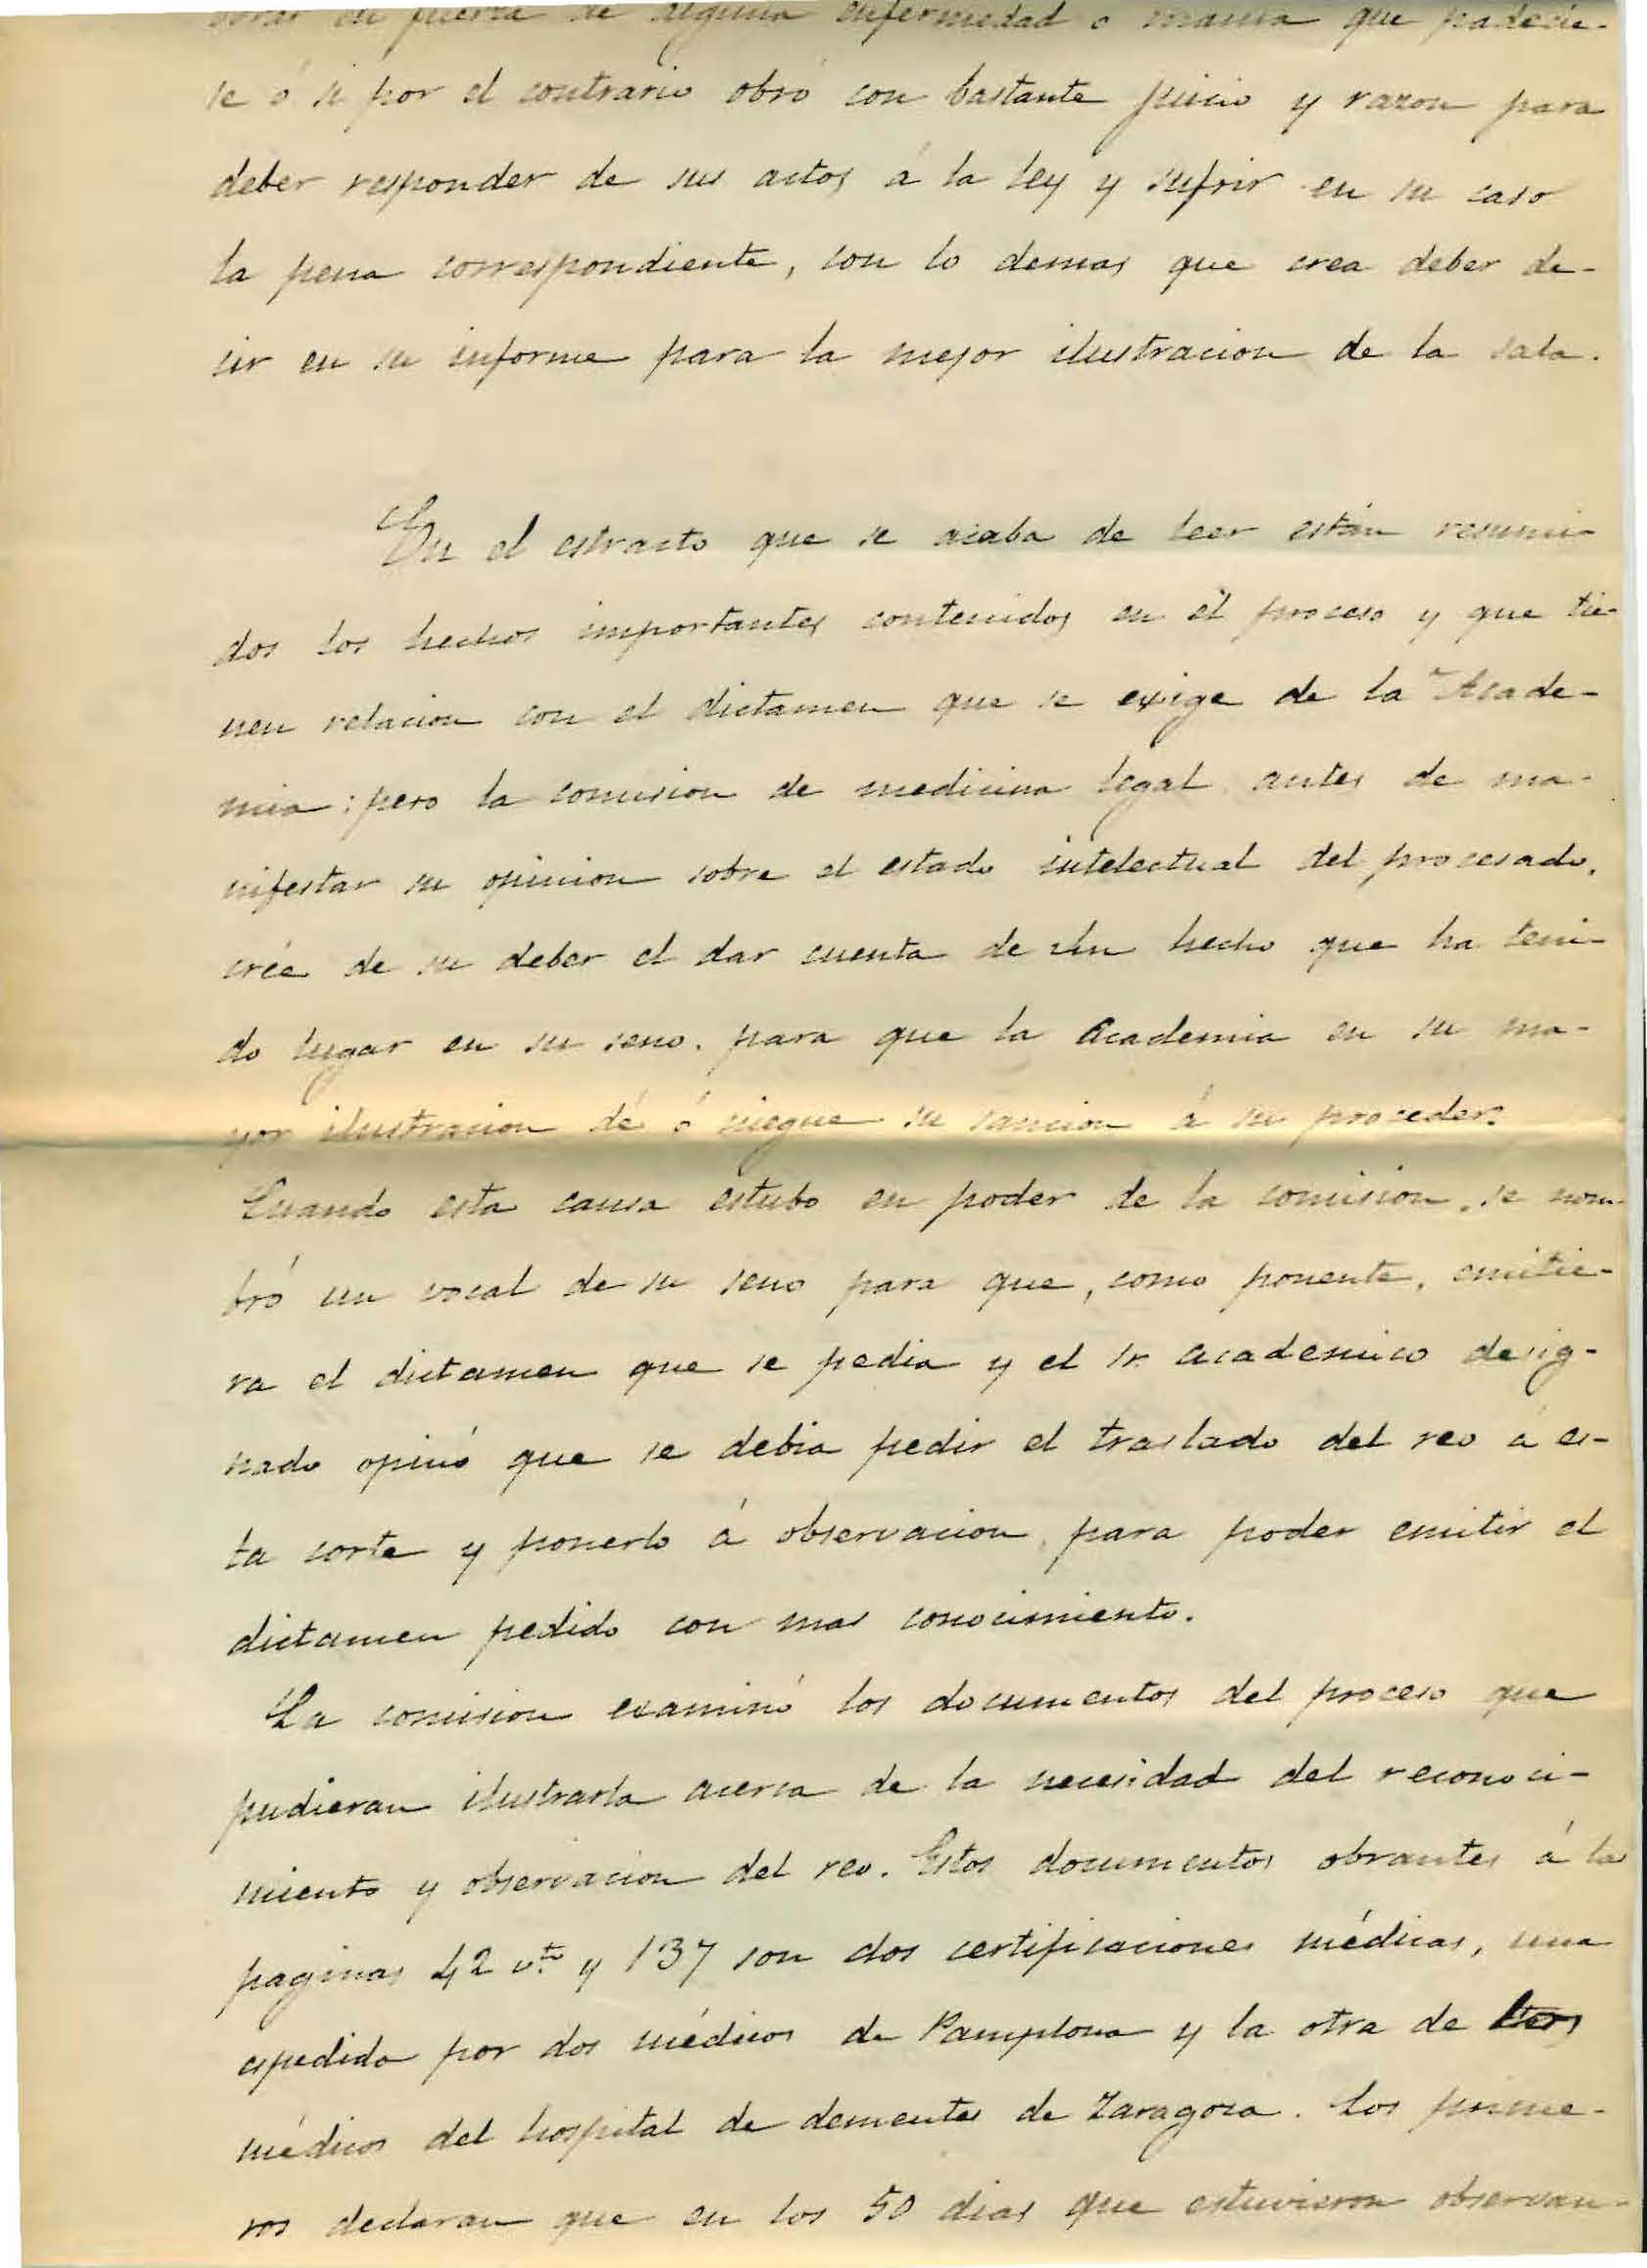 obrar en fuerza de alguna enfermedad o mania que padecie-
se ó si por el contrario obró con bastante juicio y razon para
deber responder de sus actos á la ley y sufrir en su caso
la pena correspondiente, con lo demas que crea deber de-
cir en su informe para la mejor ilustracion de la sala.
En el estracto que se acaba de leer están resumi-
dos los hechos importantes contenidos en el proceso y que tie-
nen relacion con el dictamen que se exige de la Acade-
mia; pero la comision de medicina legal antes de ma-
nifestar su opinion sobre el estado intelectual del procesado,
crée de su deber el dar cuenta de un hecho que ha teni-
do lugar en su seno, para que la Academia en su ma-
yor ilustracion dé ó niegue su sancion á su proceder.
Cuando esta causa estubo en poder de la comision, se nom-
bró un vocal de su seno para que, como ponente, emitie-
ra el dictamen que se pedia y el Sr. academico desig-
nado opinó que se debia pedir el traslado del reo á es-
ta corte y ponerlo á observacion, para poder emitir el
dictamen pedido con mas conocimiento.
La comision examinó los documentos del proceso que
pudieran ilustrarla acerca de la necesidad del reconoci-
miento y observacion del reo. Estos documentos obrantes á las
paginas 42 vto y 137 son dos certificaciones médicas, una
espedida por dos médicos de Pamplona y la otra de los
médicos del hospital de dementes de Zaragoza. Los prime-
ros declaran que en los 50 dias que estuvieron observan-